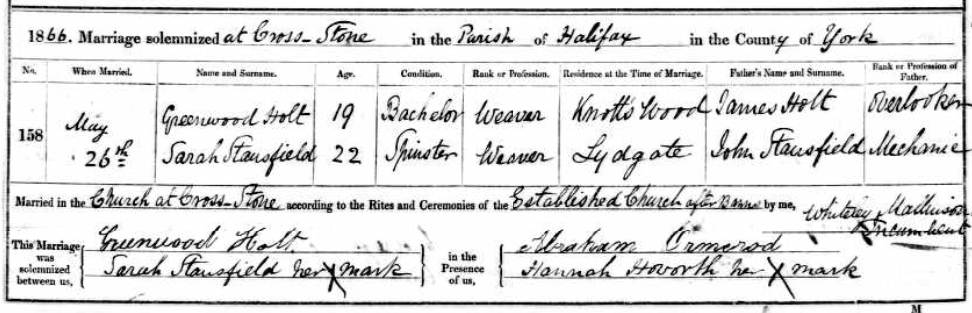 1866. Marriage solemnized at Cross-Stone in the Parish of Halifax in the County of York
No. When Married. Name and Surname. Age. Condition. Rank or Profession. Residence at the Time of Marriage. Father's Name and Surname. Rank or Profession of Father.
158 May 26th
Greenwood Holt 19 Bachelor Weaver Knott's Wood James Holt Overlooker
Sarah Stansfield 22 Spinster Weaver Lydgate John Stansfield Mechanic
Married in the Church at Cross-Stone according to the Rites and Ceremonies of the Established Church after Banns by me, Whiteley Mallinson
Incumbent
This Marriage was solemnized between us, Greenwood Holt in the Presence of us, Abraham Ormerod
Sarah Stansfield her X mark Hannah Howorth her X mark
M